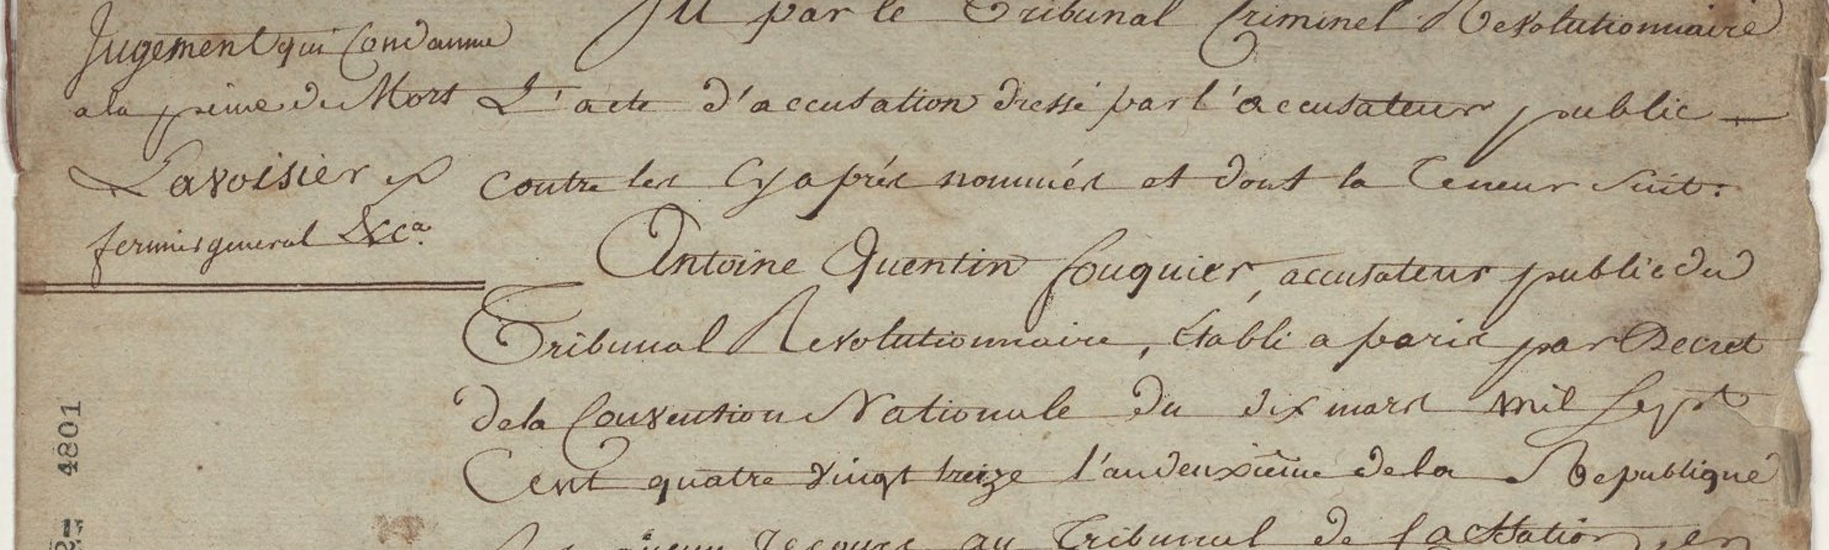 Jugement qui Condamne
a la peine de Mort
Lavoisier
fermier general &ca.
Vu par le Tribunal Criminel Revolutionnaire
L'acte d'accusation dressé par l'accusateur public
contre les Cy après nommés et dont la Teneur Suit:
Antoine Quentin fouquier, accusateur public du
Tribunal Revolutionnaire, Etabli a paris par Decret
de la Convention Nationale du dix mars mil Sept
Cent quatre vingt treize l'an deuxième de la Republique
recours au Tribunal de Cassation, en
4801